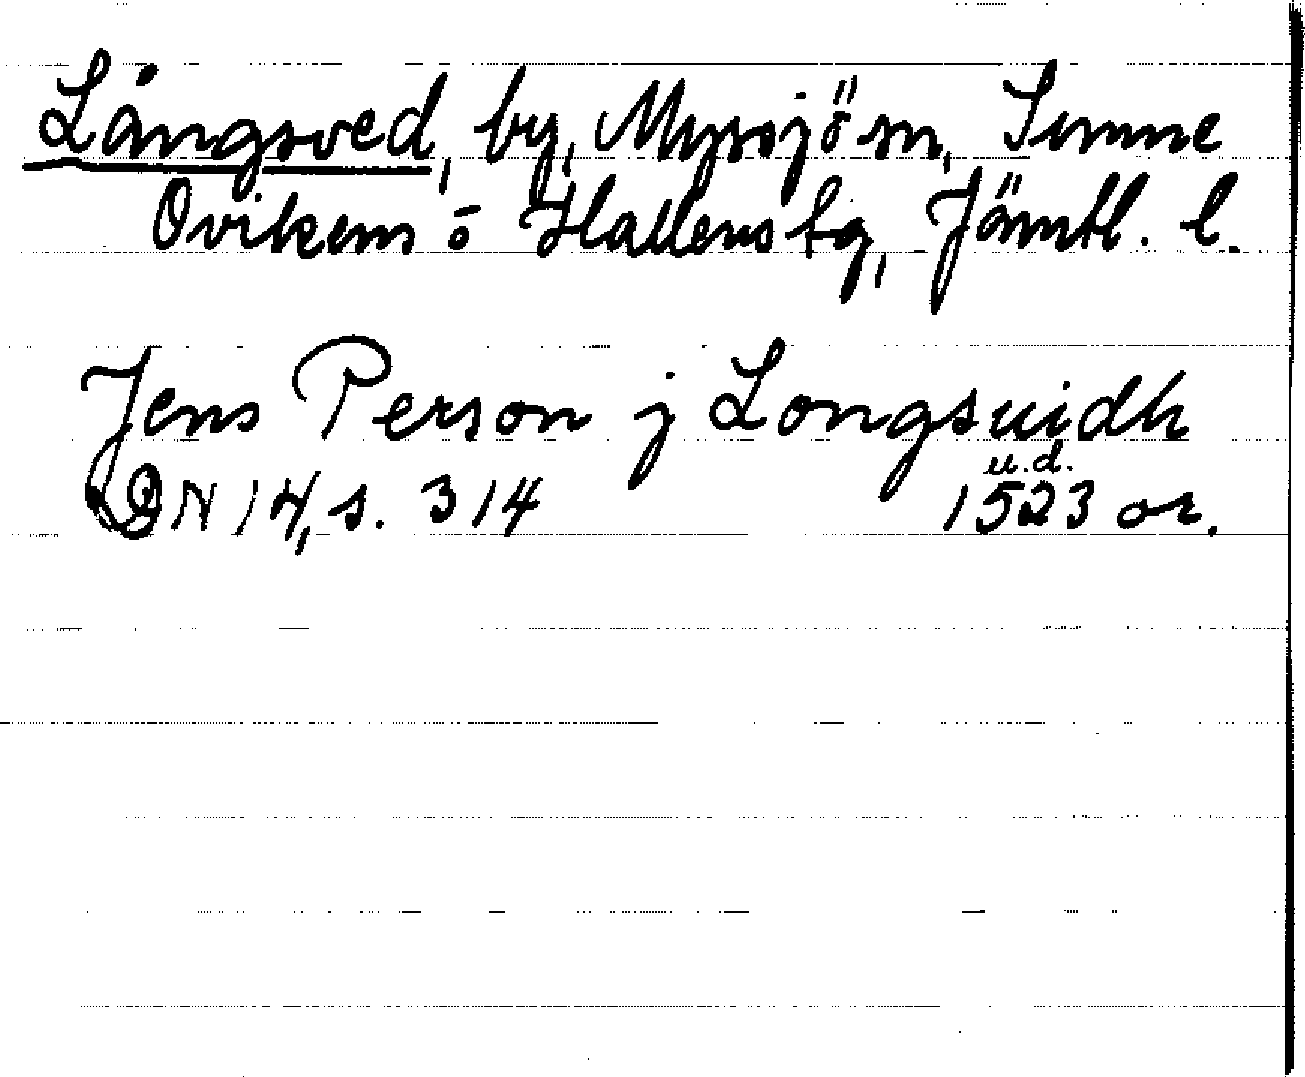 Långsved, by, Myssjö sn, Sunne
Ovikens o Hallens tg, Jämtl. l.
Jens Person j Longsuidh
u.d.
DN 14, s. 314 1523 or.